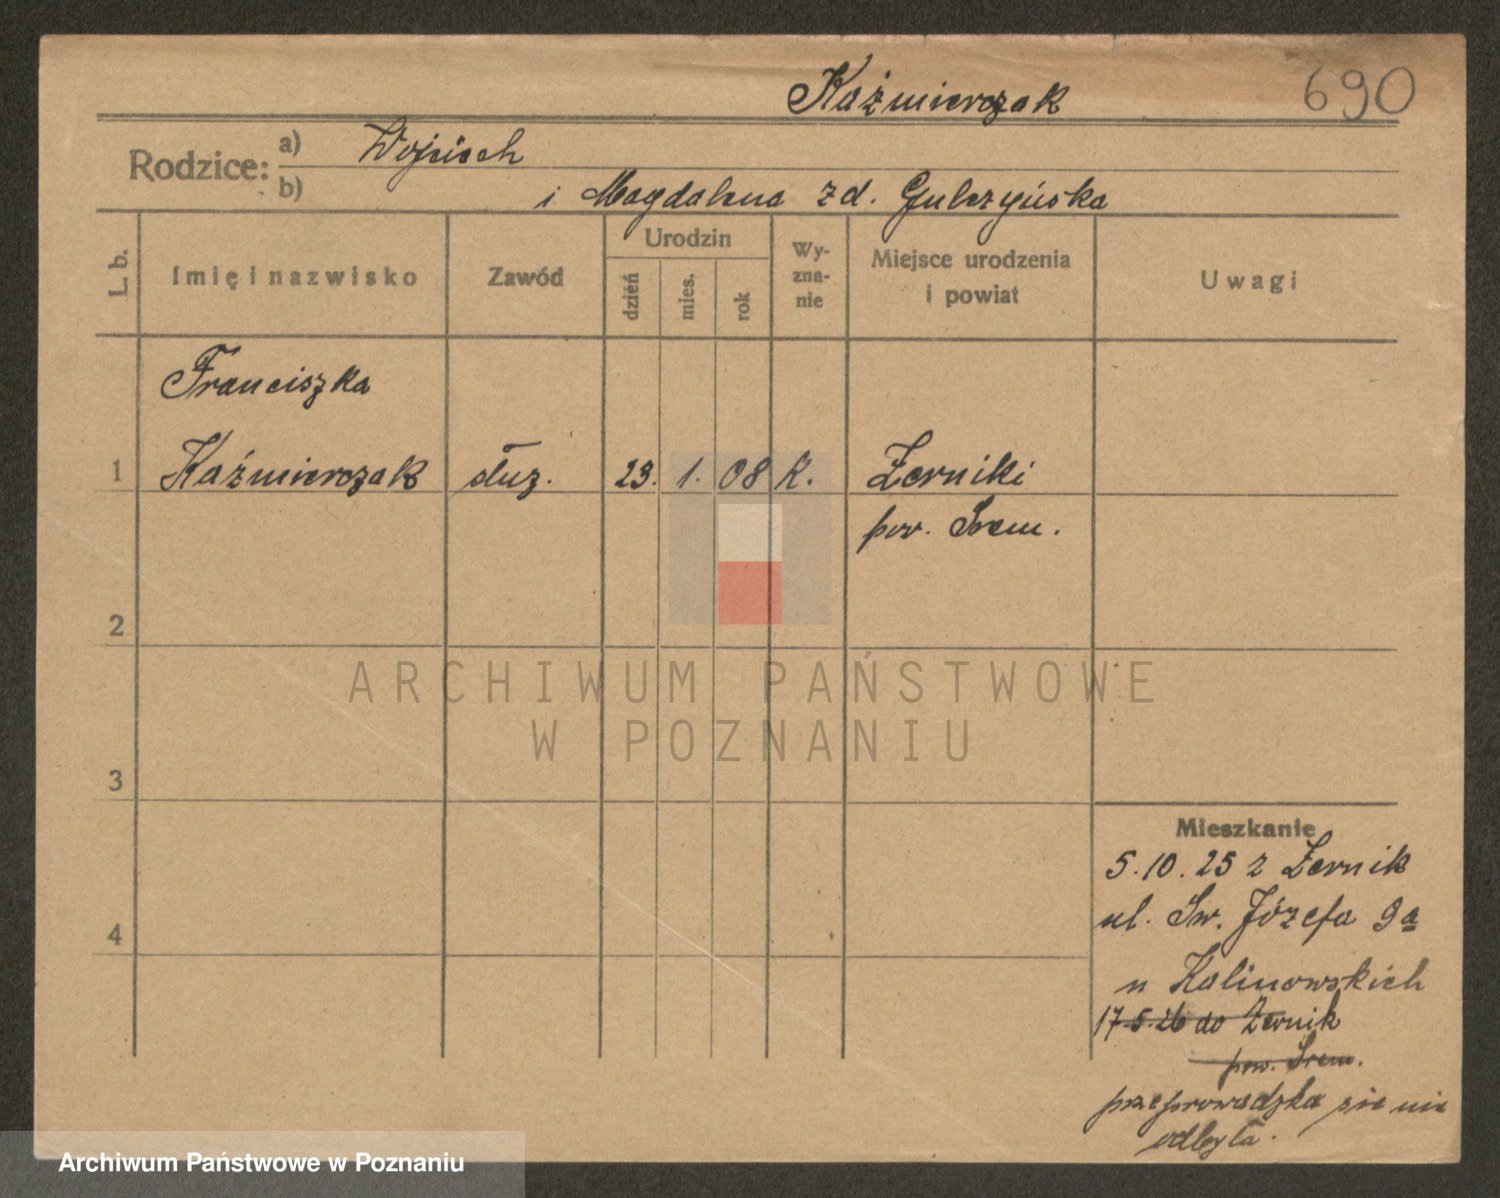 Kaźmierczak 690
Rodzice: a) Wojciech
b) i Magdalena zd. Gulczyńska
L. b. Imię i nazwisko Zawód Urodzin dzień mies. rok Wy-zna-nie Miejsce urodzenia i powiat Uwagi
Franciszka
1 Kaźmierczak służ. 23. 1. 08 K. Żerniki
pow. Śrem.
2
ARCHIWUM PAŃSTWOWE
W POZNANIU
3
Mieszkanie
5.10.25 z Żernik
ul. Św. Józefa 9a
4
u Kalinowskich
17.5.26 do Żernik
pow. Śrem.
przeprowadzka się nie
odbyła.
Archiwum Państwowe w Poznaniu